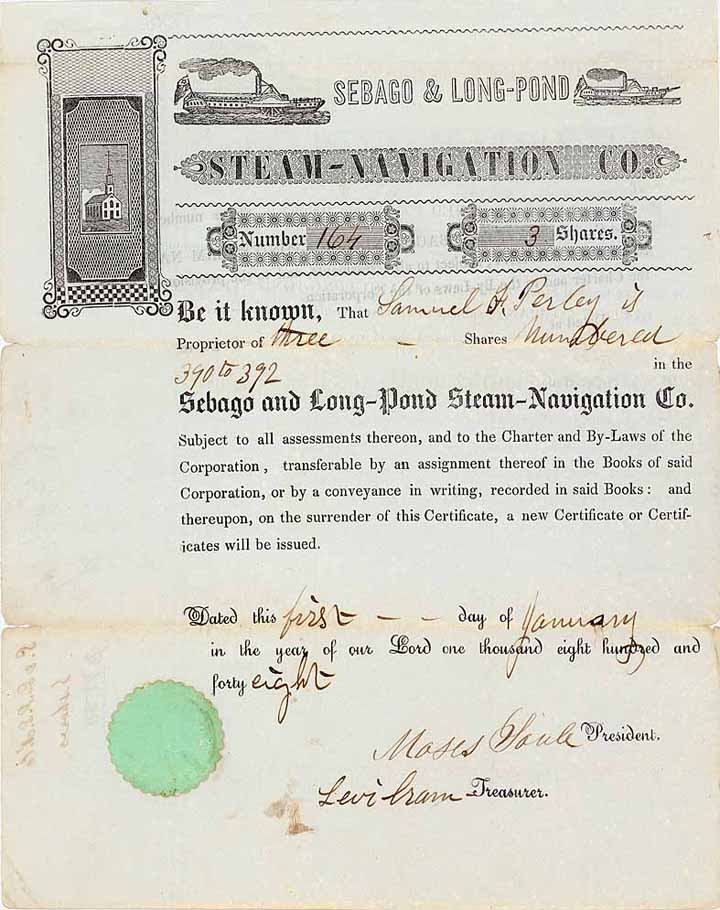 SEBAGO & LONG-POND
STEAM-NAVIGATION CO.
Number 164
3 Shares.
Be it known, That Samuel F. Perley is
Proprietor of three - Shares Numbered
390 to 392 in the
Sebago and Long-Pond Steam-Navigation Co.
Subject to all assessments thereon, and to the Charter and By-Laws of the
Corporation, transferable by an assignment thereof in the Books of said
Corporation, or by a conveyance in writing, recorded in said Books: and
thereupon, on the surrender of this Certificate, a new Certificate or Certif-
icates will be issued.
Dated this first - - day of January
in the year of our Lord one thousand eight hundred and
forty eight
Moses Soule President.
Levi Cram Treasurer.